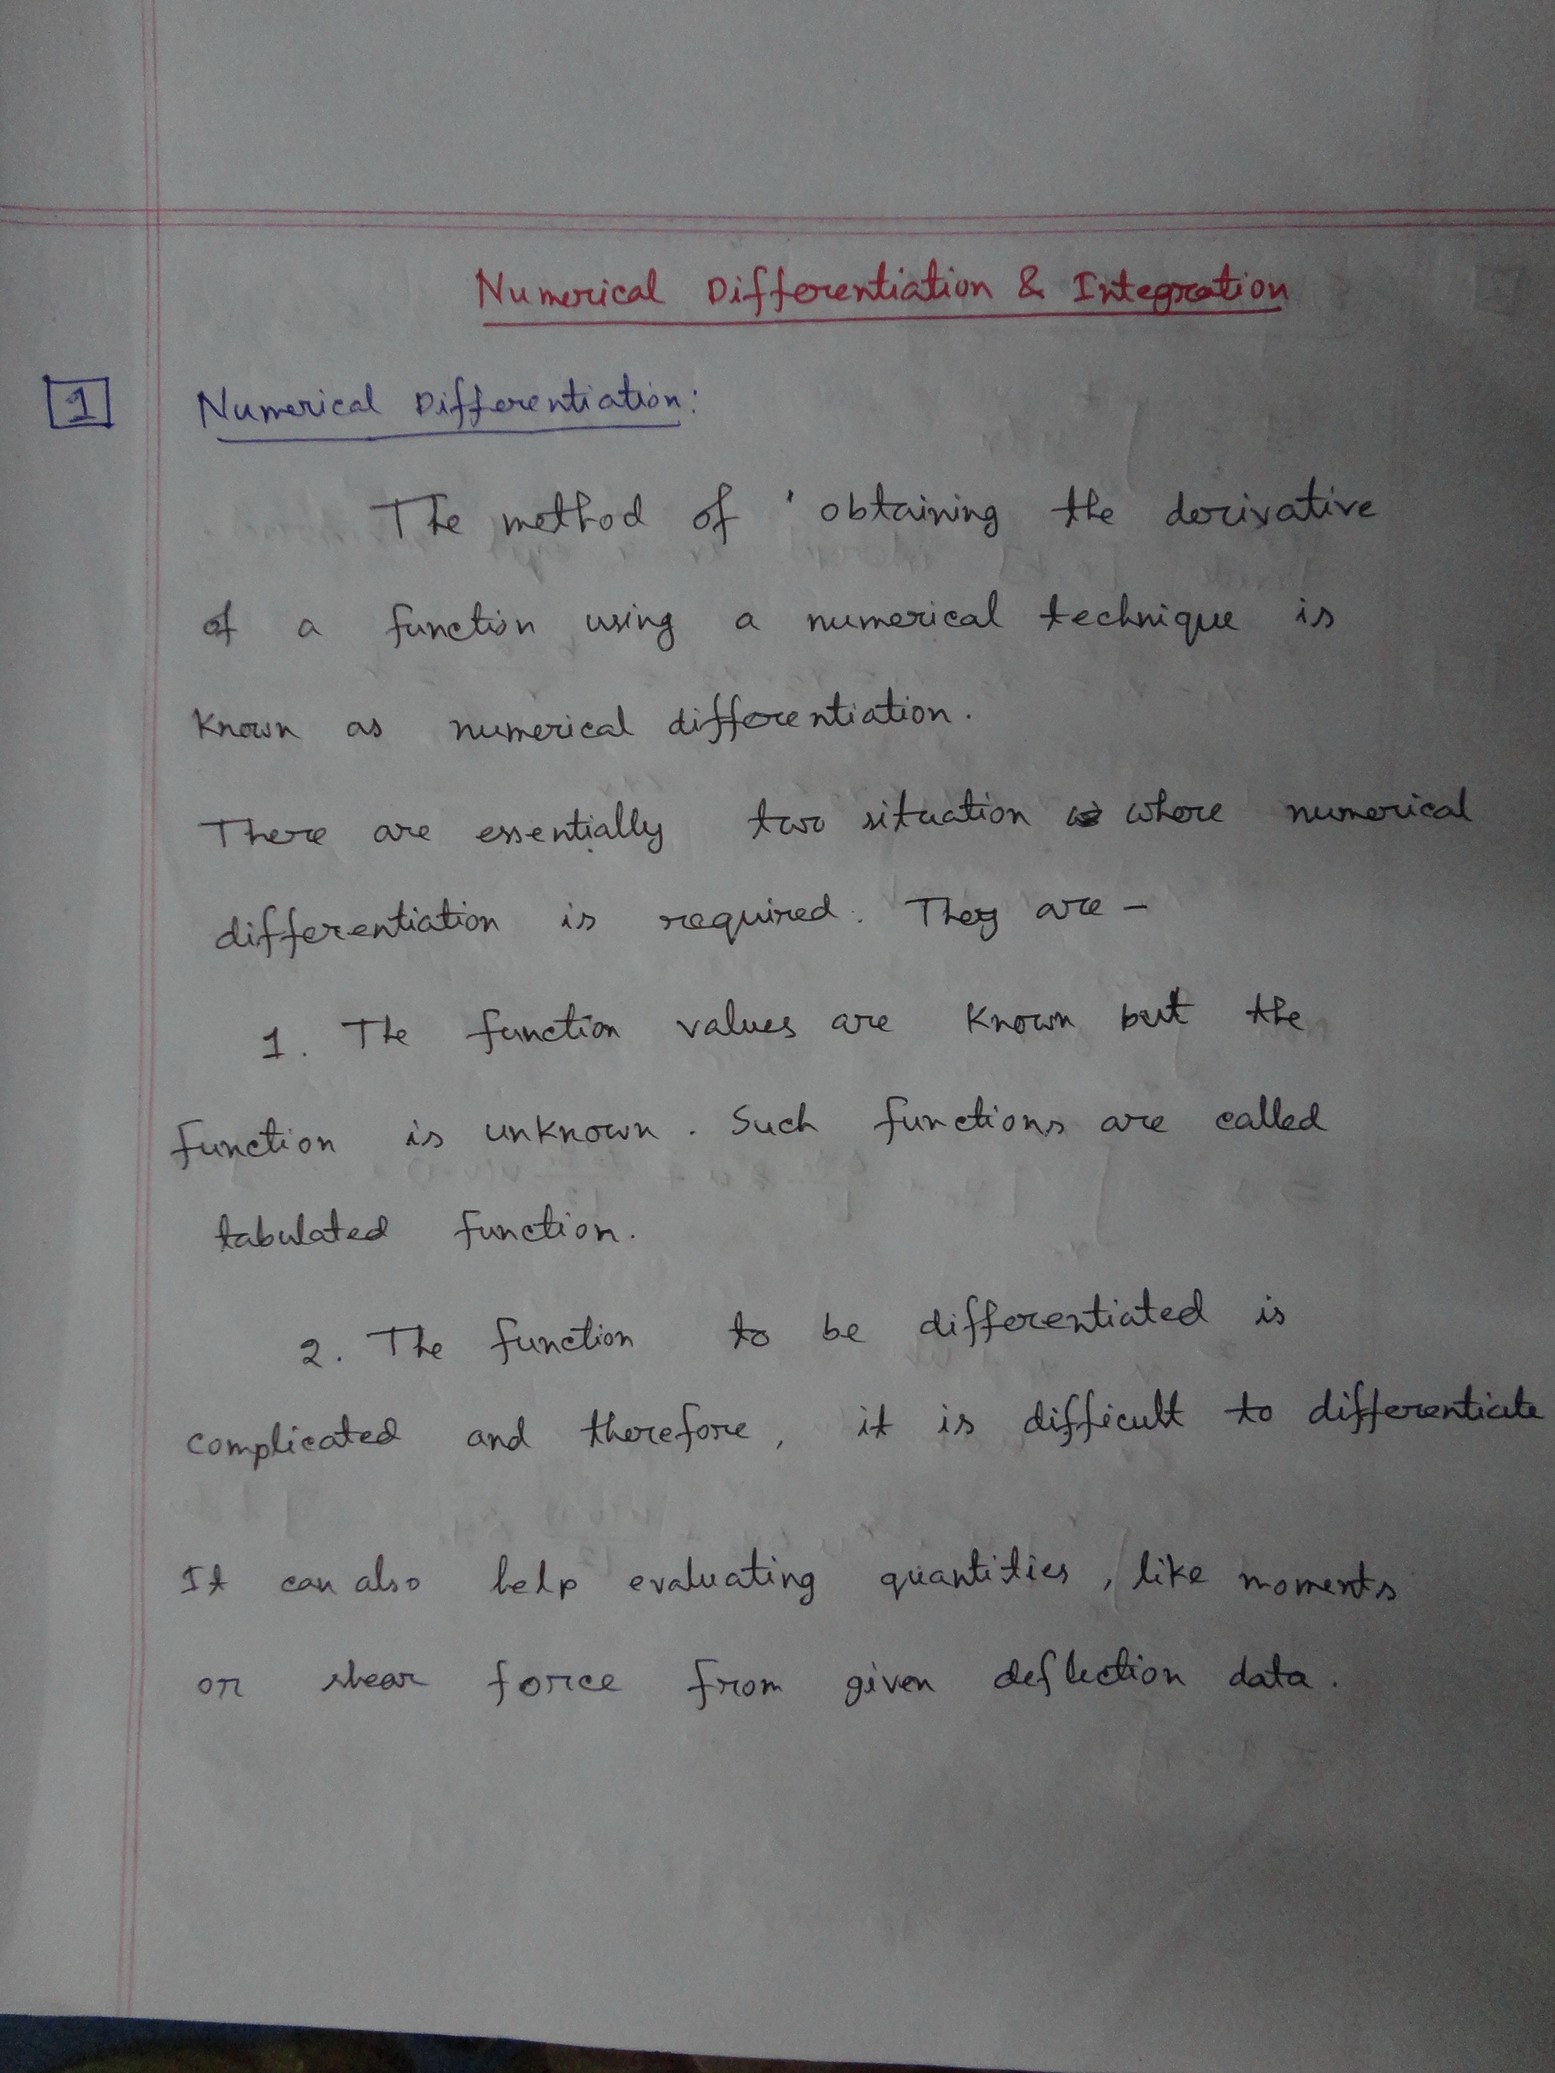 Numerical Differentiation & Integration
1 Numerical Differentiation:
The method of obtaining the derivative
of a function using a numerical technique is
known as numerical differentiation.
There are essentially two situation where numerical
differentiation is required. They are –
1. The function values are known but the
function is unknown. Such functions are called
tabulated function.
2. The function to be differentiated is
complicated and therefore, it is difficult to differentiate
It can also help evaluating quantities, like moments
or shear force from given deflection data.